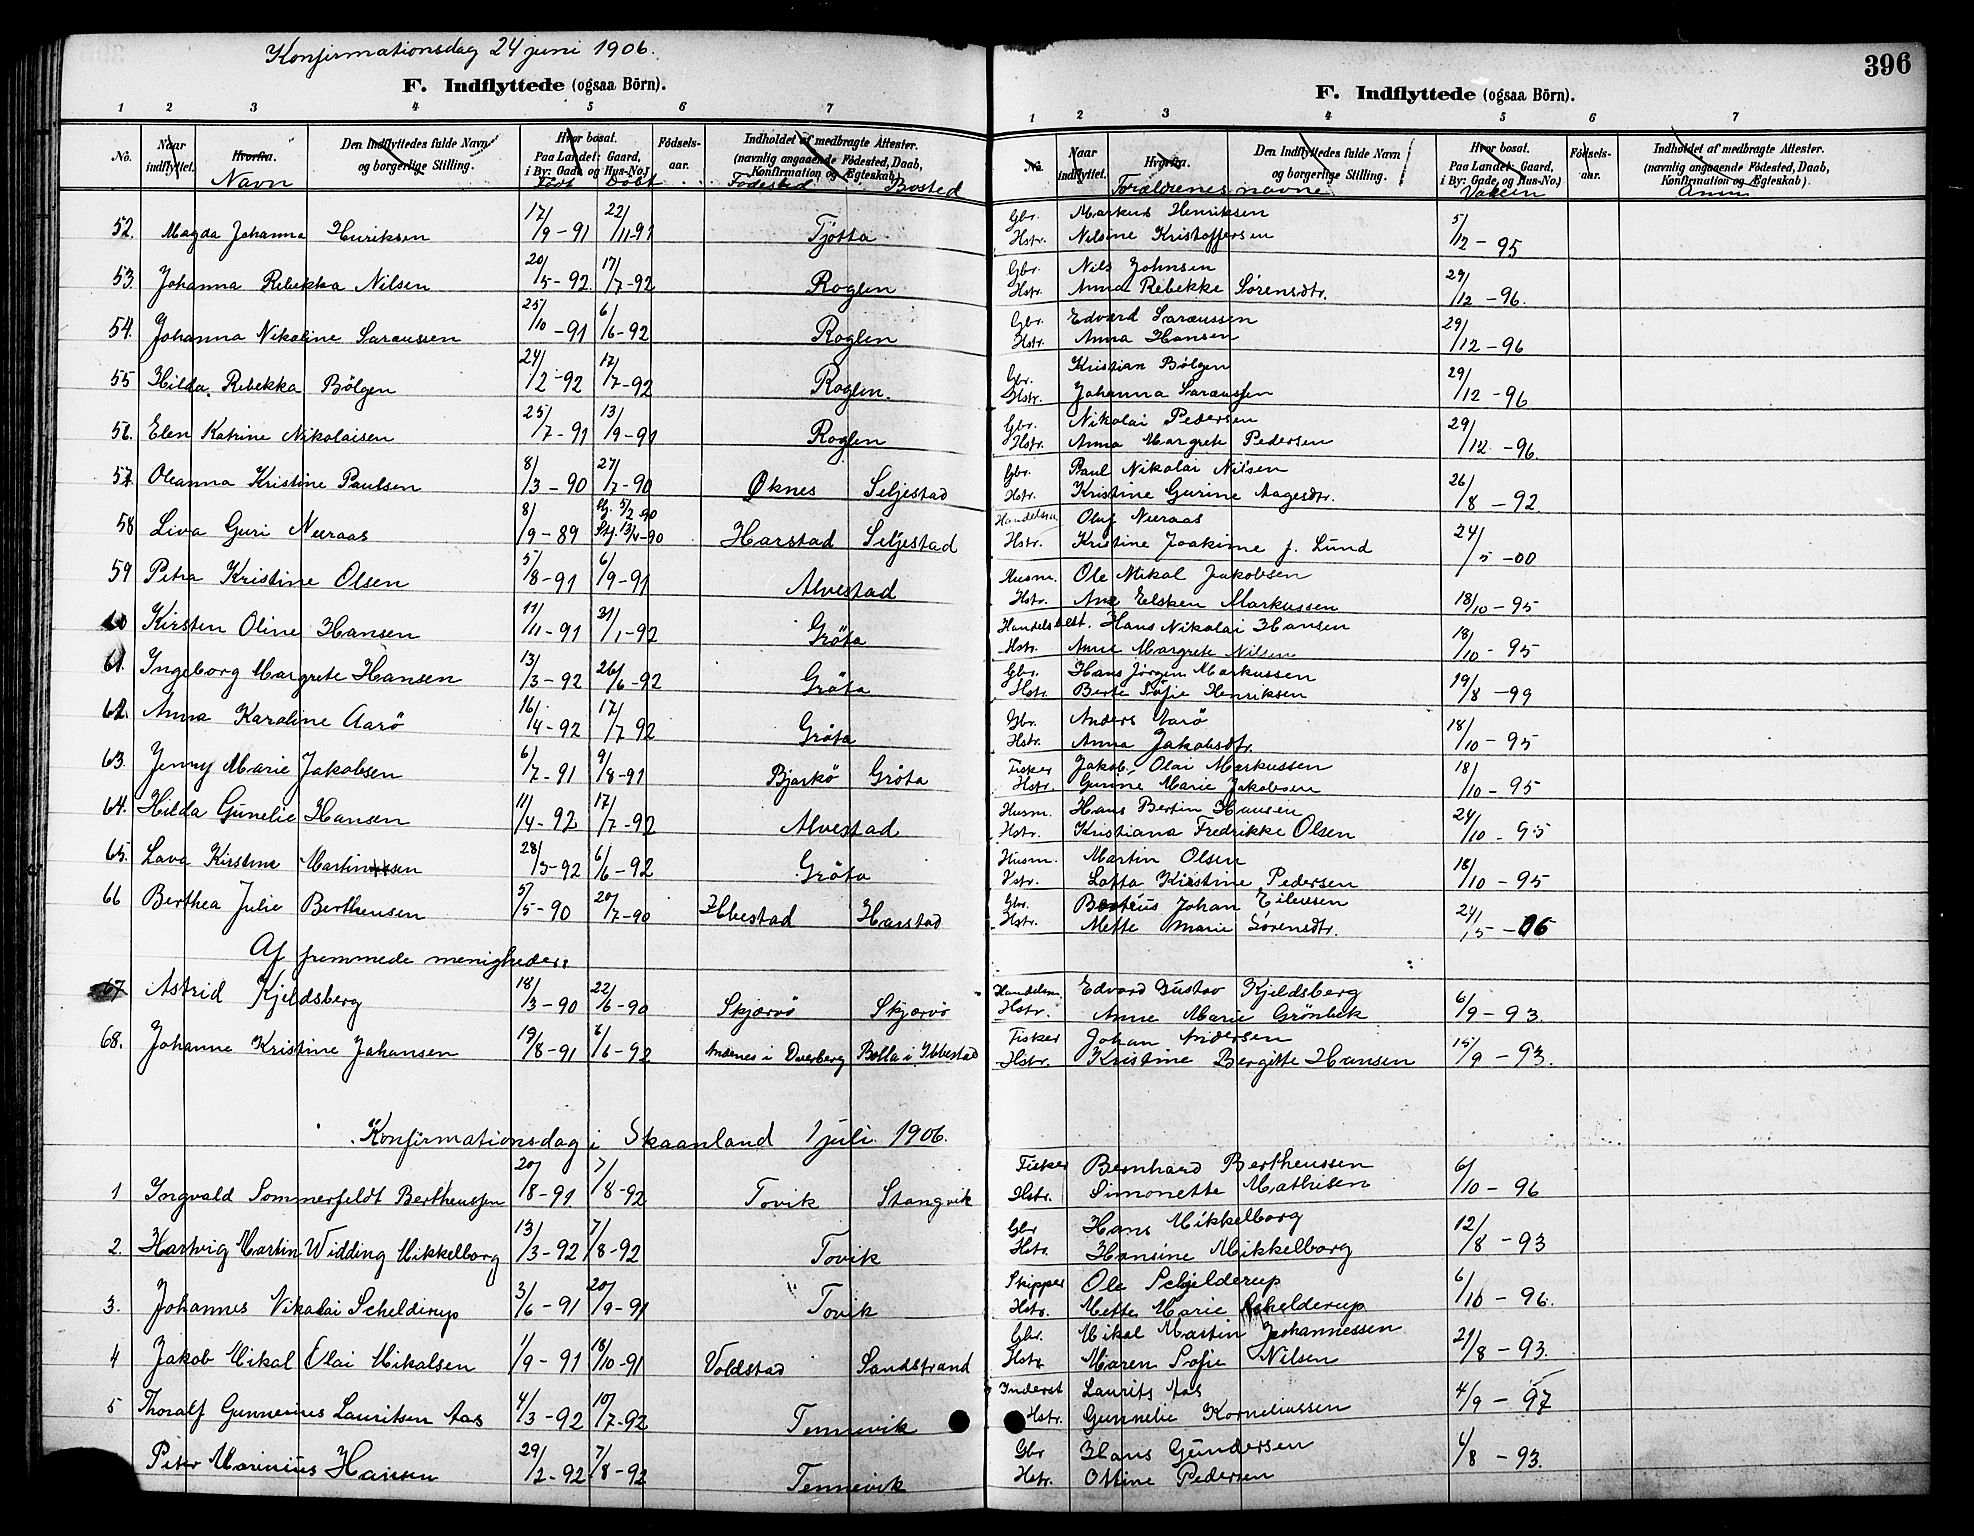 Konfirmationsdag 24 juni 1906.
F. Indflyttede (ogsaa Börn).
1 2 3 4 5 6 7
No. Naar indflyttet. Hvorfra. Den Indflyttedes fulde Navn og borgerlige Stilling. Hvor bosat. Paa Landet: Gaard, i By: Gade og Hus-No.) Fødsels-aar. Indholdet af medbragte Attester. (navnlig angaaende Födested, Daab, Konfirmation og Ægteskab).
Navn Født Døbt Fødested Bosted
52. Magda Johanna Henriksen 17/9-91 22/11-91 Tjøtta
53. Johanna Rebekka Nilsen 20/5-92 17/7-92 Roglen
54. Johanna Nikoline Saraussen 25/10-91 6/6-92 Roglen
55 Hilda Rebekka Bölgen 24/2-92 17/7-92 Roglen.
56. Elen Katrine Nikolaisen 25/7-91 13/9-91 Roglen
57. Oleanna Kristine Paulsen 8/3-90 27/7-90 Øknes Seljestad
58 Liva Guri Neeraas 8/9-89 5/2-90 13/4-90 Harstad Seljestad
59 Petra Kristine Olsen 5/8-91 6/9-91 Alvestad
60 Kirsten Oline Hansen 11/11-91 31/1-92 Gröta
61. Ingeborg Margrete Hansen 13/3-92 26/6-92 Gröta
62. Anna Karoline Aarö 16/4-92 17/7-92 Gröta
63. Jenny Marie Jakobsen 6/7-91 9/8-91 Bjarkö Gröta
64. Hilda Gunelie Hansen 11/4-92 17/7-92 Alvestad
65. Lava Kirstine Martinsen 28/5-92 6/6-92 Gröta
66 Berthea Julie Bertheusen 5/5-90 20/7-90 Ibbestad Harstad
Af fremmede menigheder:
67 Astrid Kjeldsberg 18/3-90 22/6-90 Skjærvö Skjærvö
68. Johanne Kristine Johansen 19/8-91 6/6-92 Andenes i Dverberg Bolla i Ibbestad
Konfirmationsdag i Skaanland 1 juli 1906.
1 Ingvald Sommerfeldt Bertheussen 20/8-91 7/8-92 Tovik Stangvik
2. Hartvig Martin Widding Mikkelborg 13/3-92 7/8-92 Tovik
3. Johannes Nikolai Schelderup 3/6-91 20/9-91 Tovik
4 Jakob Mikal Olai Mikalsen 1/9-91 18/10-91 Voldstad Sandstrand
5 Thoralf Gunnerius Lauritsen Aas 4/3-92 10/7-92 Tennevik
Peter Marinius Hansen 29/2-92 7/8-92 Tennevik
396
F. Indflyttede (ogsaa Börn).
1 2 3 4 5 6 7
No. Naar indflyttet. Hvorfra. Den Indflyttedes fulde Navn og borgerlige Stilling. Hvor bosat. Paa Landet: Gaard, i By: Gade og Hus-No.) Fødsels-aar. Indholdet af medbragte Attester. (navnlig angaaende Födested, Daab, Konfirmation og Ægteskab).
Forældrenes navne Vaccin Anm.
Gbr. Markus Henriksen
Hstr. Nilsine Kristoffersen 5/12-95
Gbr. Nils Johnsen
Hstr. Anna Rebekke Sörensdtr. 29/12-96.
Gbr. Edvard Saraussen
Hstr. Anna Hansen 29/12-96
Gbr. Kristian Bölgen
Hstr. Johanna Saraussen 29/12-96
Gbr. Nikolai Pedersen
Hstr. Anna Margrete Pedersen 29/12-96.
Gbr. Paul Nikolai Nilsen
Hstr. Kristine Gurine Aagesdtr. 26/8-92
Handelsm. Oluf Neeraas
Hstr. Kristine Joakime f. Lund 24/5-00
Husm. Ole Mikal Jakobsen
Hstr. Ane Elsken Markussen 18/10-95
Handelsbest. Hans Nikolai Hansen
Hstr. Anne Margrete Nilsen 18/10-95
Gbr. Hans Jörgen Markussen
Hstr. Berte Sofie Henriksen 19/8-99
Gbr. Anders Aarö
Hstr. Anna Jakobsdtr. 18/10-95
Fisker Jakob Olai Markussen
Hstr. Gurine Marie Jakobsen 18/10-95
Husm. Hans Bertin Hansen
Hstr. Kristiana Fredrikke Olsen 24/10-95
Husm. Martin Olsen
Hstr. Lotta Kirstine Pedersen 18/10-95
Gbr. Berteus Johan Eilersen
Hstr. Mette Marie Sörensdtr. 24/5-06
Handelsm. Edvard Gustav Kjeldsberg
Hstr. Anne Marie Grönbek 6/9-93.
Fisker Johan Andersen
Hstr. Kristine Bergitte Hansen 15/9-93.
Fisker Bernhard Bertheussen
Hstr. Simonette Mathisen 6/10-96
Gbr Hans Mikkelborg
Hstr. Hansine Mikkelborg 12/8-93
Skipper Ole Schjelderup
Hstr. Mette Marie Schelderup 6/10-96.
Gbr. Mikal Martin Johannessen
Hstr Maren Sofie Nilsen 21/8-93.
Inderst Laurits Aas
Hstr. Gunnelie Korneliussen 4/9-97
Gbr Hans Gundersen
Hstr. Ottine Pedersen 6/8-93.